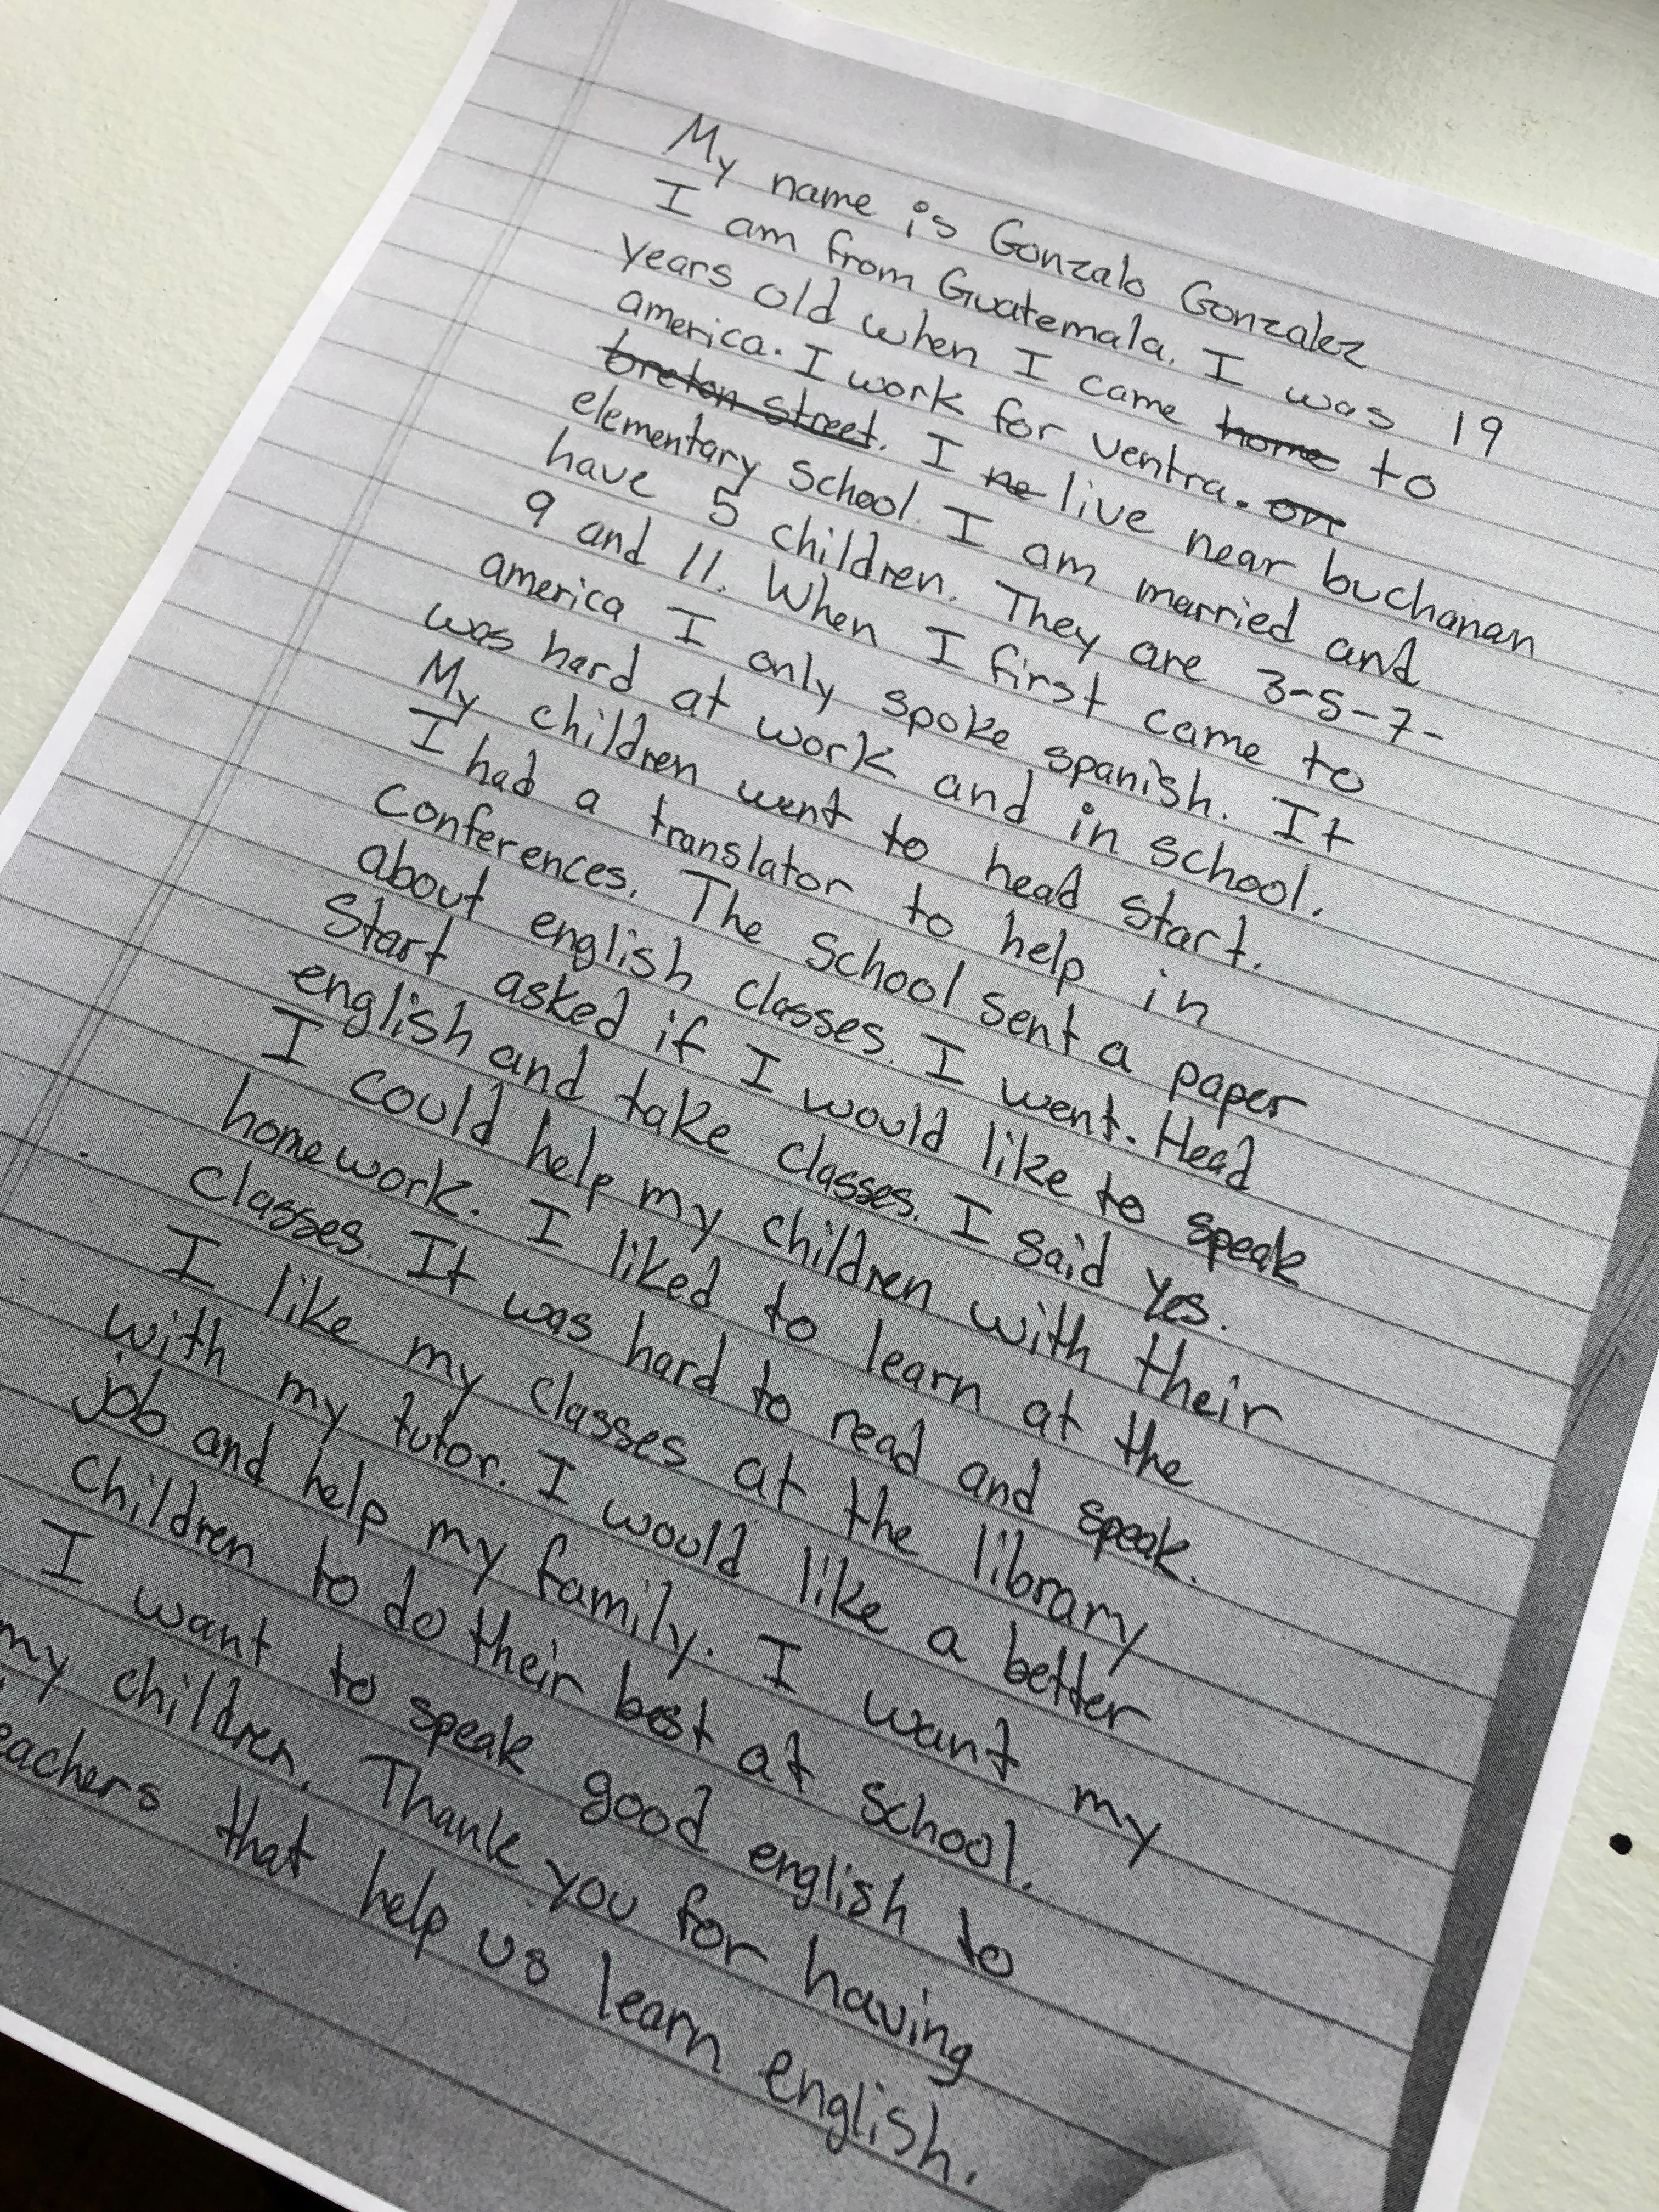 My name is Gonzalo Gonzalez
I am from Guatemala. I was 19
years old when I came home to
america. I work for ventra. on
breton street. I ne live near buchanan
elementary School. I am married and
have 5 children. They are 3-5-7-
9 and 11. When I first came to
america I only spoke spanish. It
was hard at work and in school.
My children went to head start.
I had a translator to help in
conferences. The School sent a paper
about english classes. I went. Head
Start asked if I would like to speak
english and take classes. I said yes.
I could help my children with their
homework. I liked to learn at the
classes. It was hard to read and speak.
I like my classes at the library
with my tutor. I would like a better
job and help my family. I want my
children to do their best at school.
I want to speak good english to
my children. Thank you for having
eachers that help us learn english.